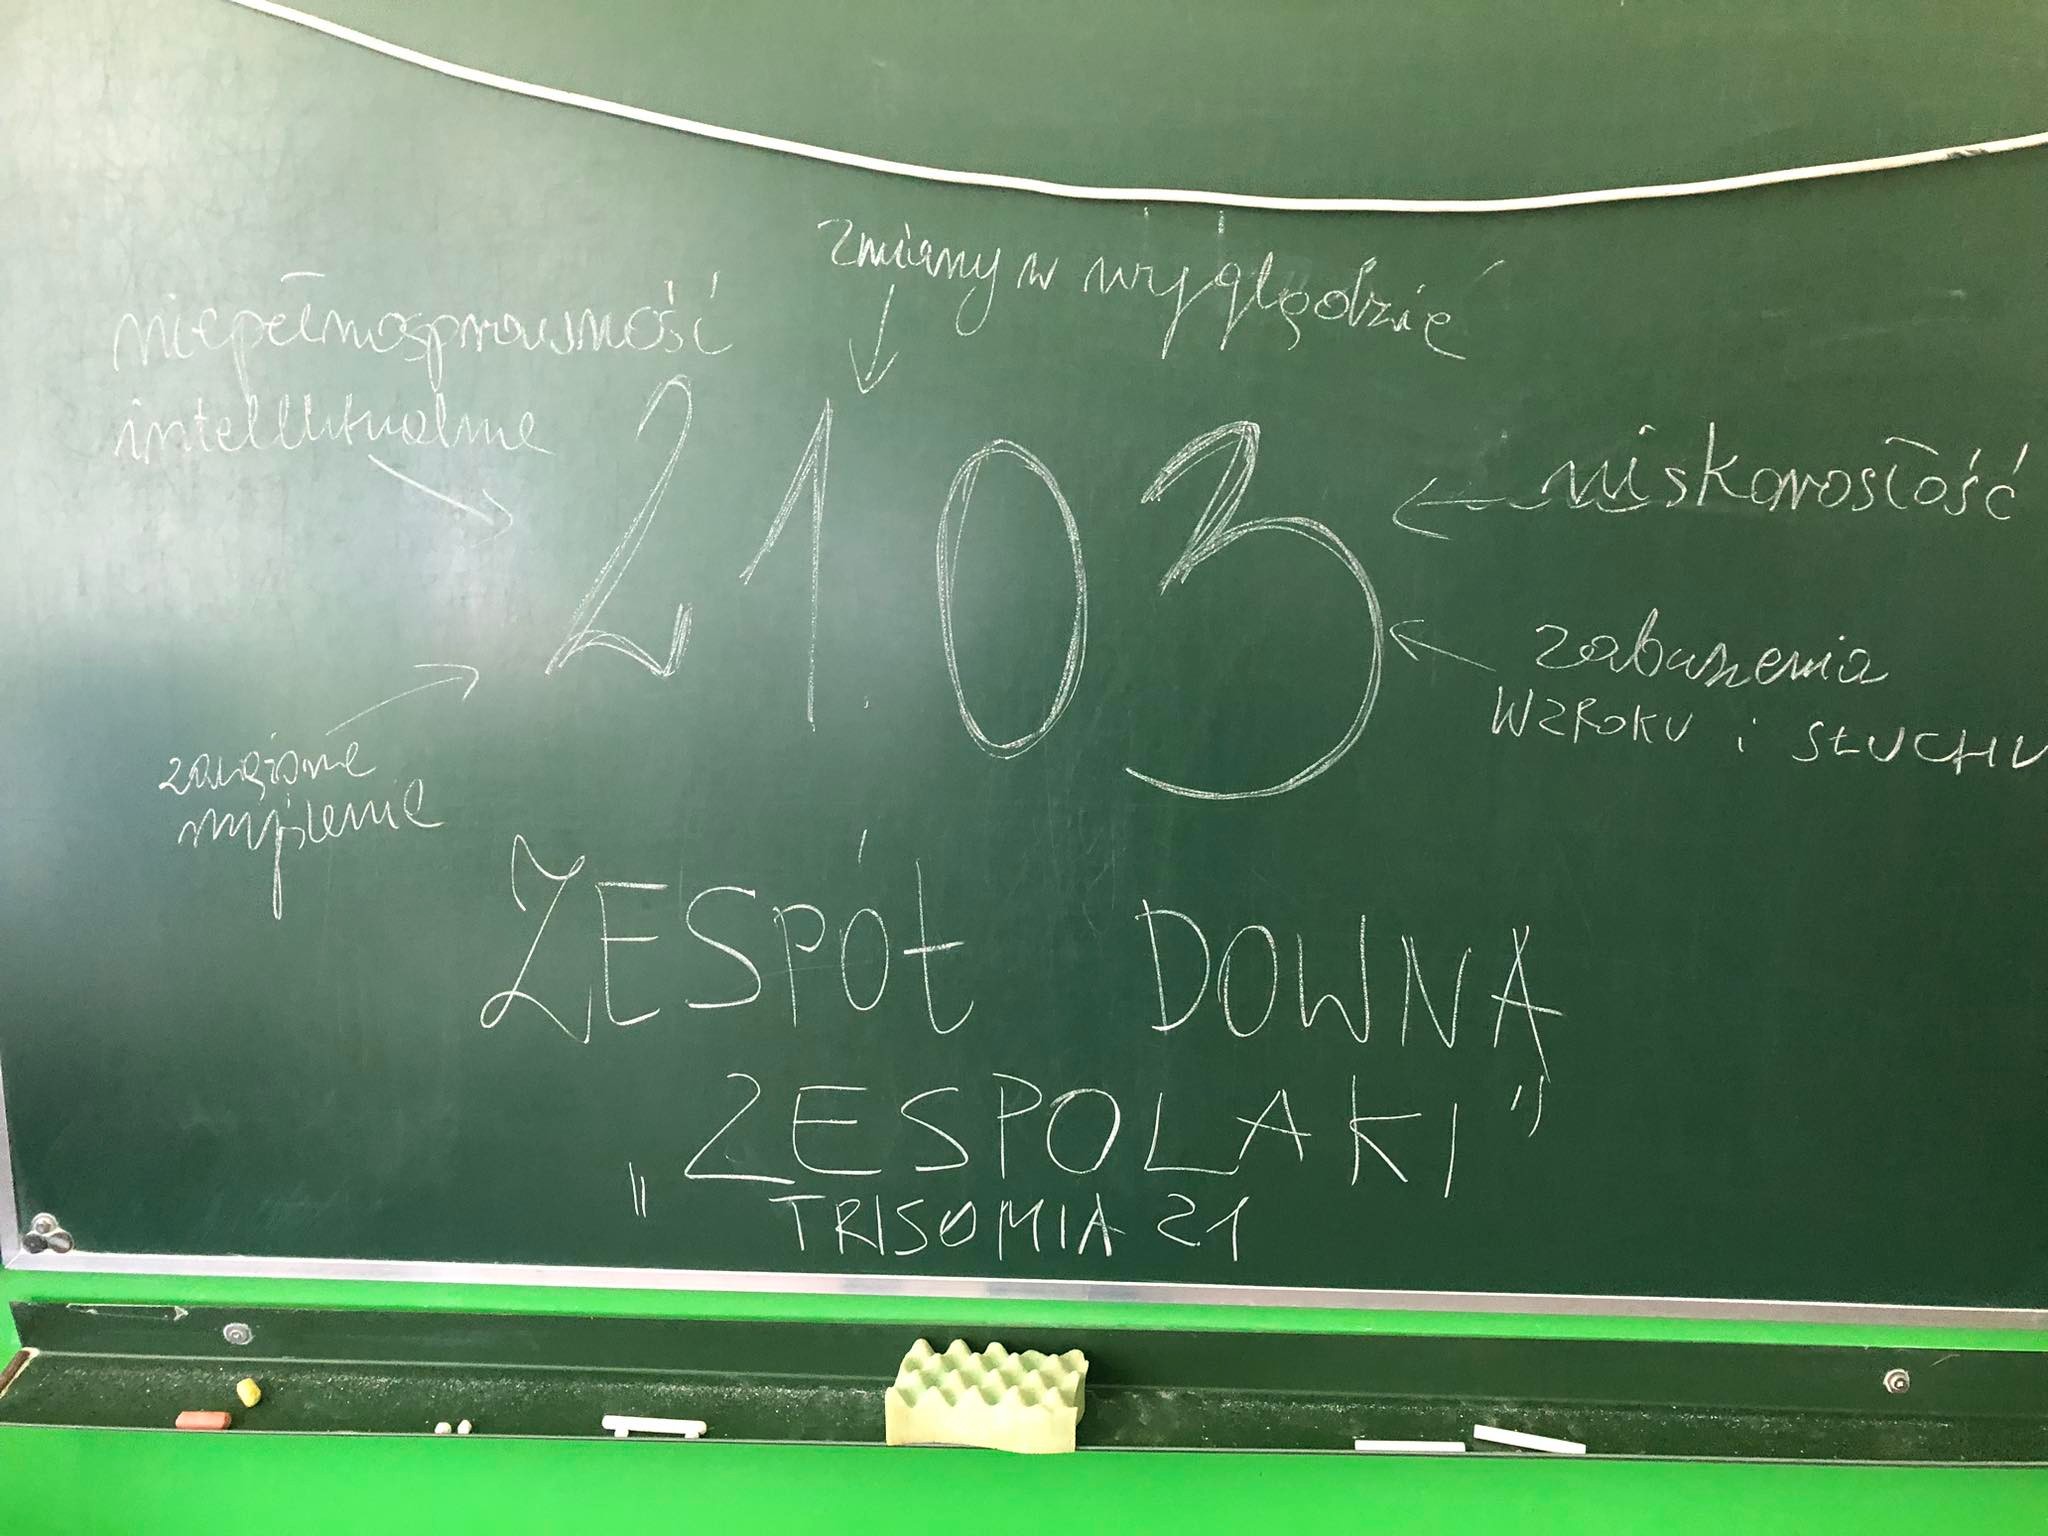 zmiany w wyglądzie
niepełnosprawność
intelektualna
21.03
niskorosłość
zaburzenia
WZROKU i SŁUCHU
myślenie
ZESPÓŁ DOWNA
„ZESPOLAKI”
TRISOMIA 21